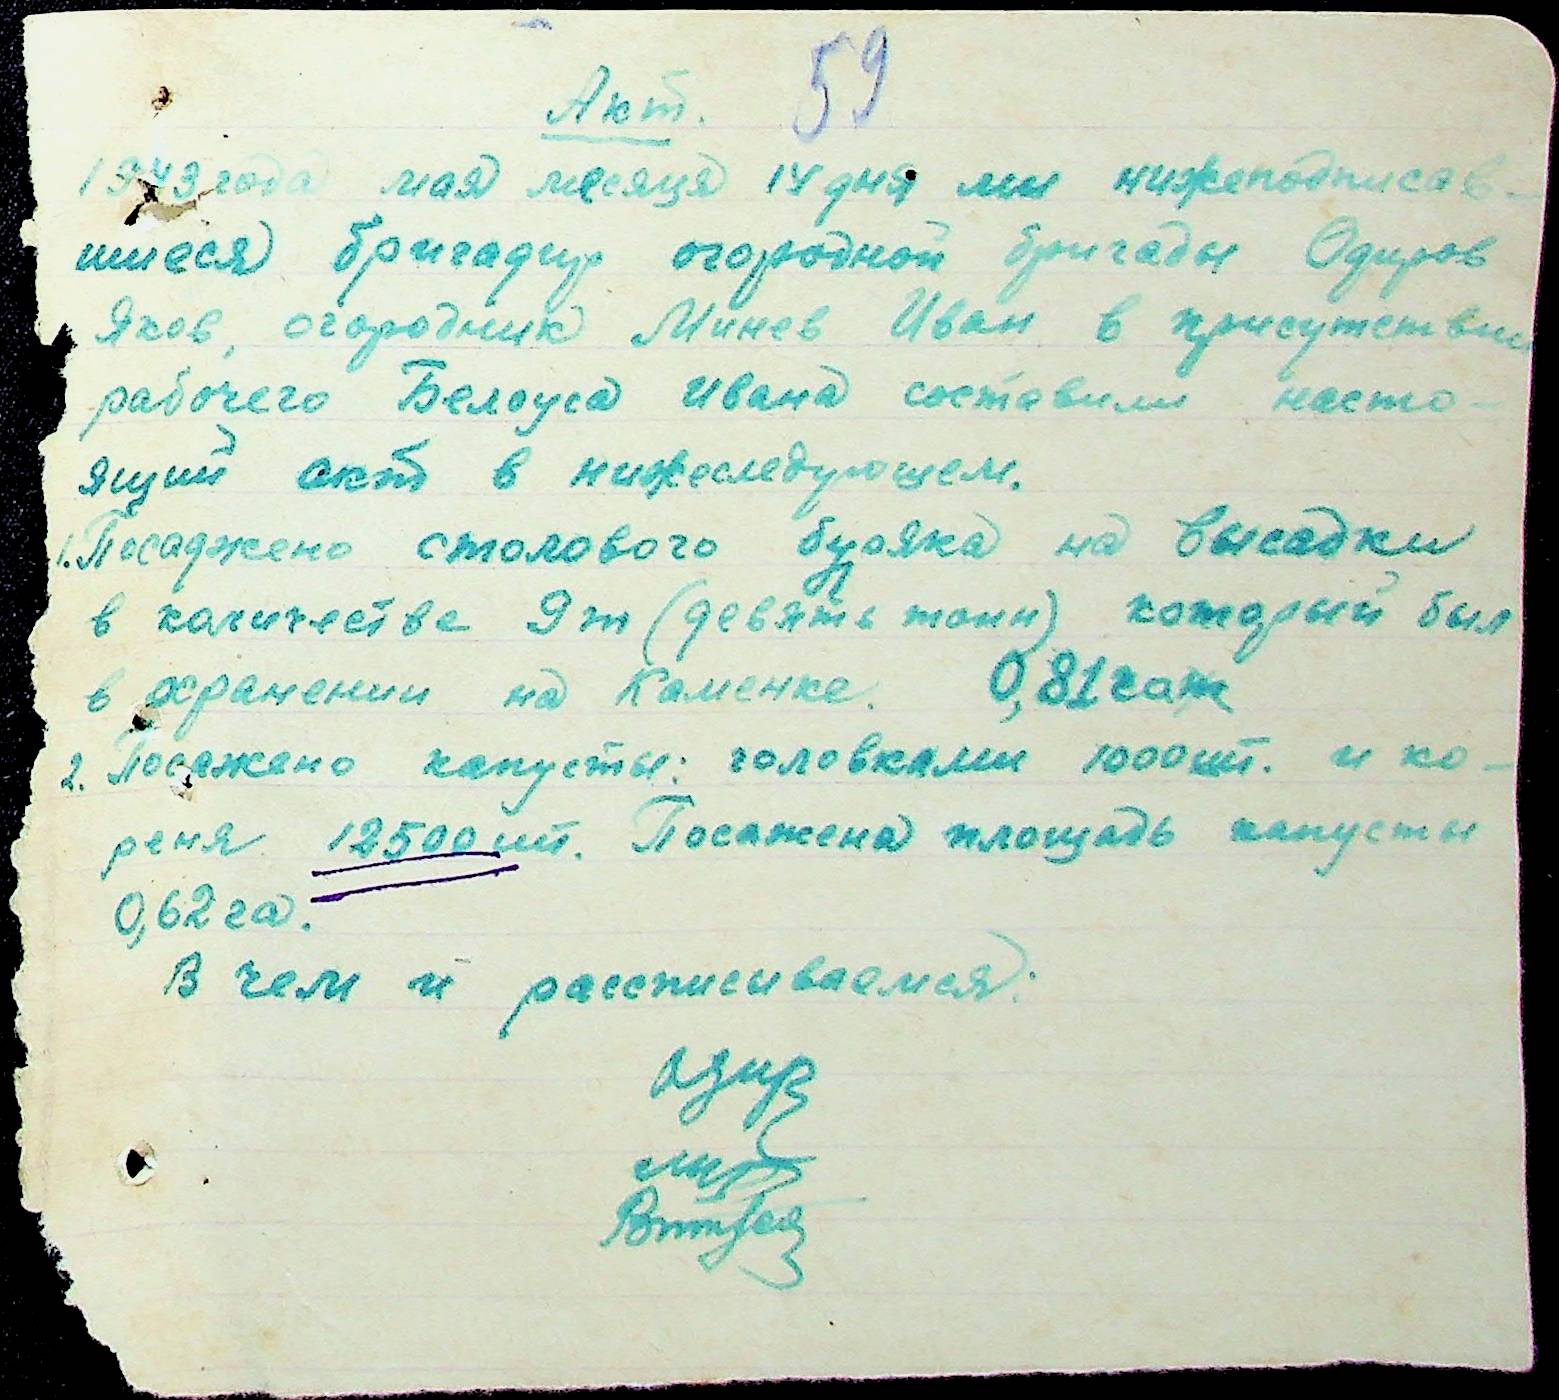 59
Акт.
1943 года мая месяца 14 дня мы нижеподписав-
шиеся бригадир огородной бригады Одиров
Яков, огородник Минев Иван в присутствии
рабочего Белоуса Ивана составили насто-
ящий акт в нижеследующем.
1. Посаджено столового буряка на высадки
в количестве 9т (девять тонн) который был
в охранении на Каменке. 0,81 га
2. Посажено капусты: головками 1000 шт. и ко-
реня 12500 шт. Посажена площадь капусты
0,62 га.
В чем и рассписиваемся:
Одир